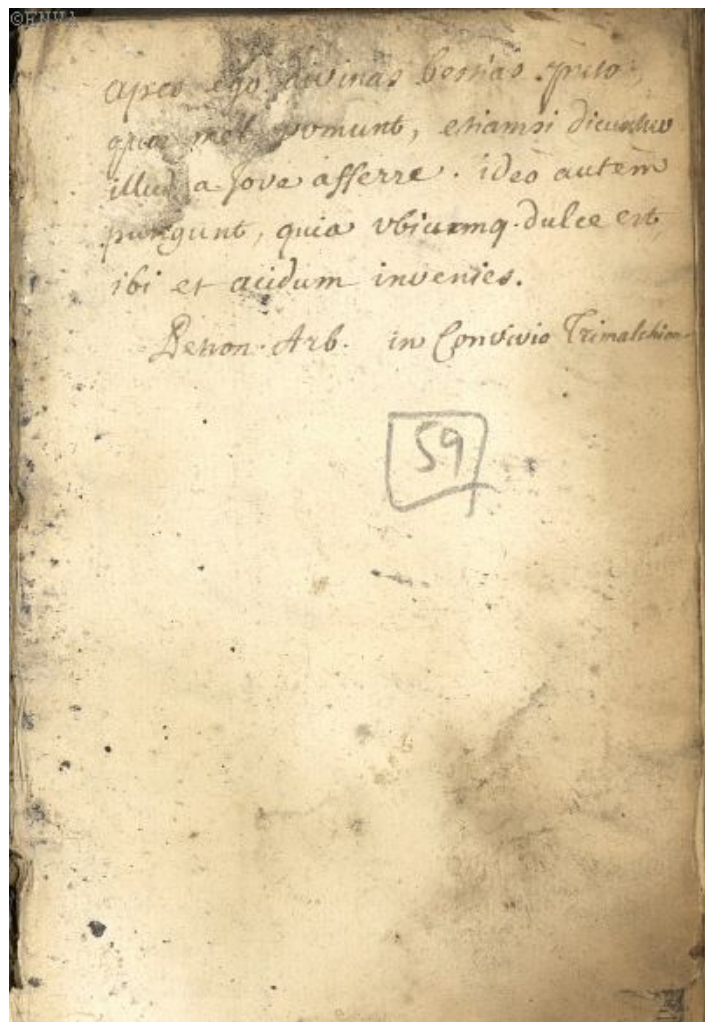 ©ENVA
apes ego divinas bestias puto,
quae mel vomunt, etiamsi dicuntur
illud a Jove afferre. ideo autem
pungunt, quia ubicumq. dulce est,
ibi et acidum invenies.
Petron. Arb. in Convivio Trimalchion.
59